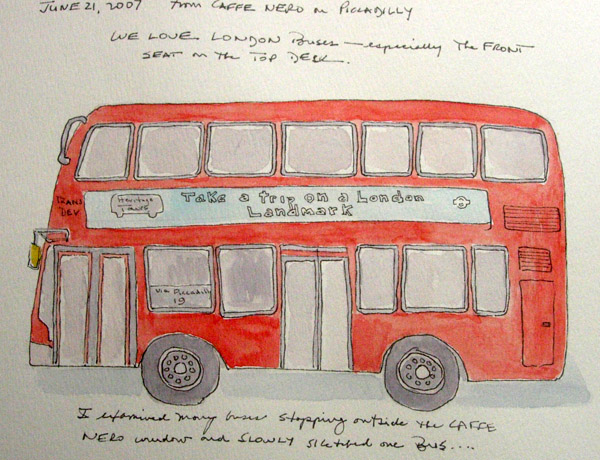 JUNE 21, 2007 from CAFFE NERO on PICCADILLY
WE LOVE LONDON Buses — especially The FRONT
SEAT on The TOP DECK.
TRANS
DEV
Heritage
Take a trip on a London
Landmark
Via Piccadilly
19
I examined many buses stopping outside The CAFFE
NERO window and SLOWLY sketched one BUS....